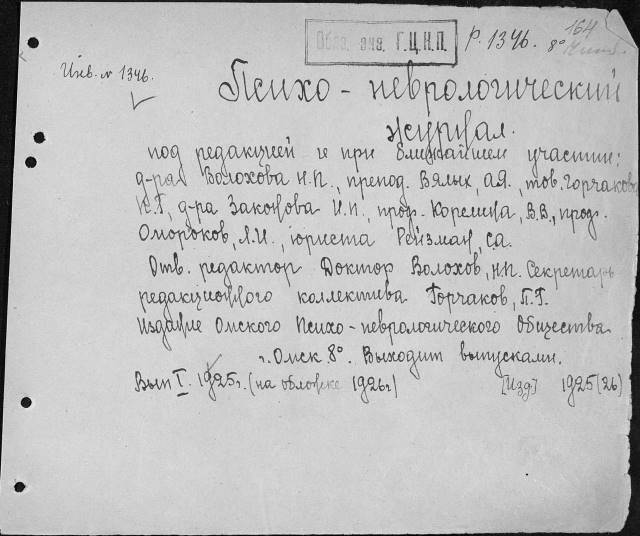 Обяз. экз. Г.Ц.К.П.
Р. 1346.
164
8°
Инв. № 1346.
Психо-неврологический
журнал.
под редакцией и при ближайшем участии:
д-ра Волохова Н.П., препод. Вялых, А.Я., тов. Горчакова
П.Г., д-ра Законова И.П., проф. Корелина, В.В., проф.
Омороков, Л.И., юриста Рейзман, С.А.
Отв. редактор Доктор Волохов, Н.П. Секретарь
редакционного коллектива Горчаков, П.Г.
Издание Омского Психо-неврологического Общества
г. Омск. 8°. Выходит выпусками.
Вып I. 1925г. (на обложке 1926г) [Изд] 1925(26)